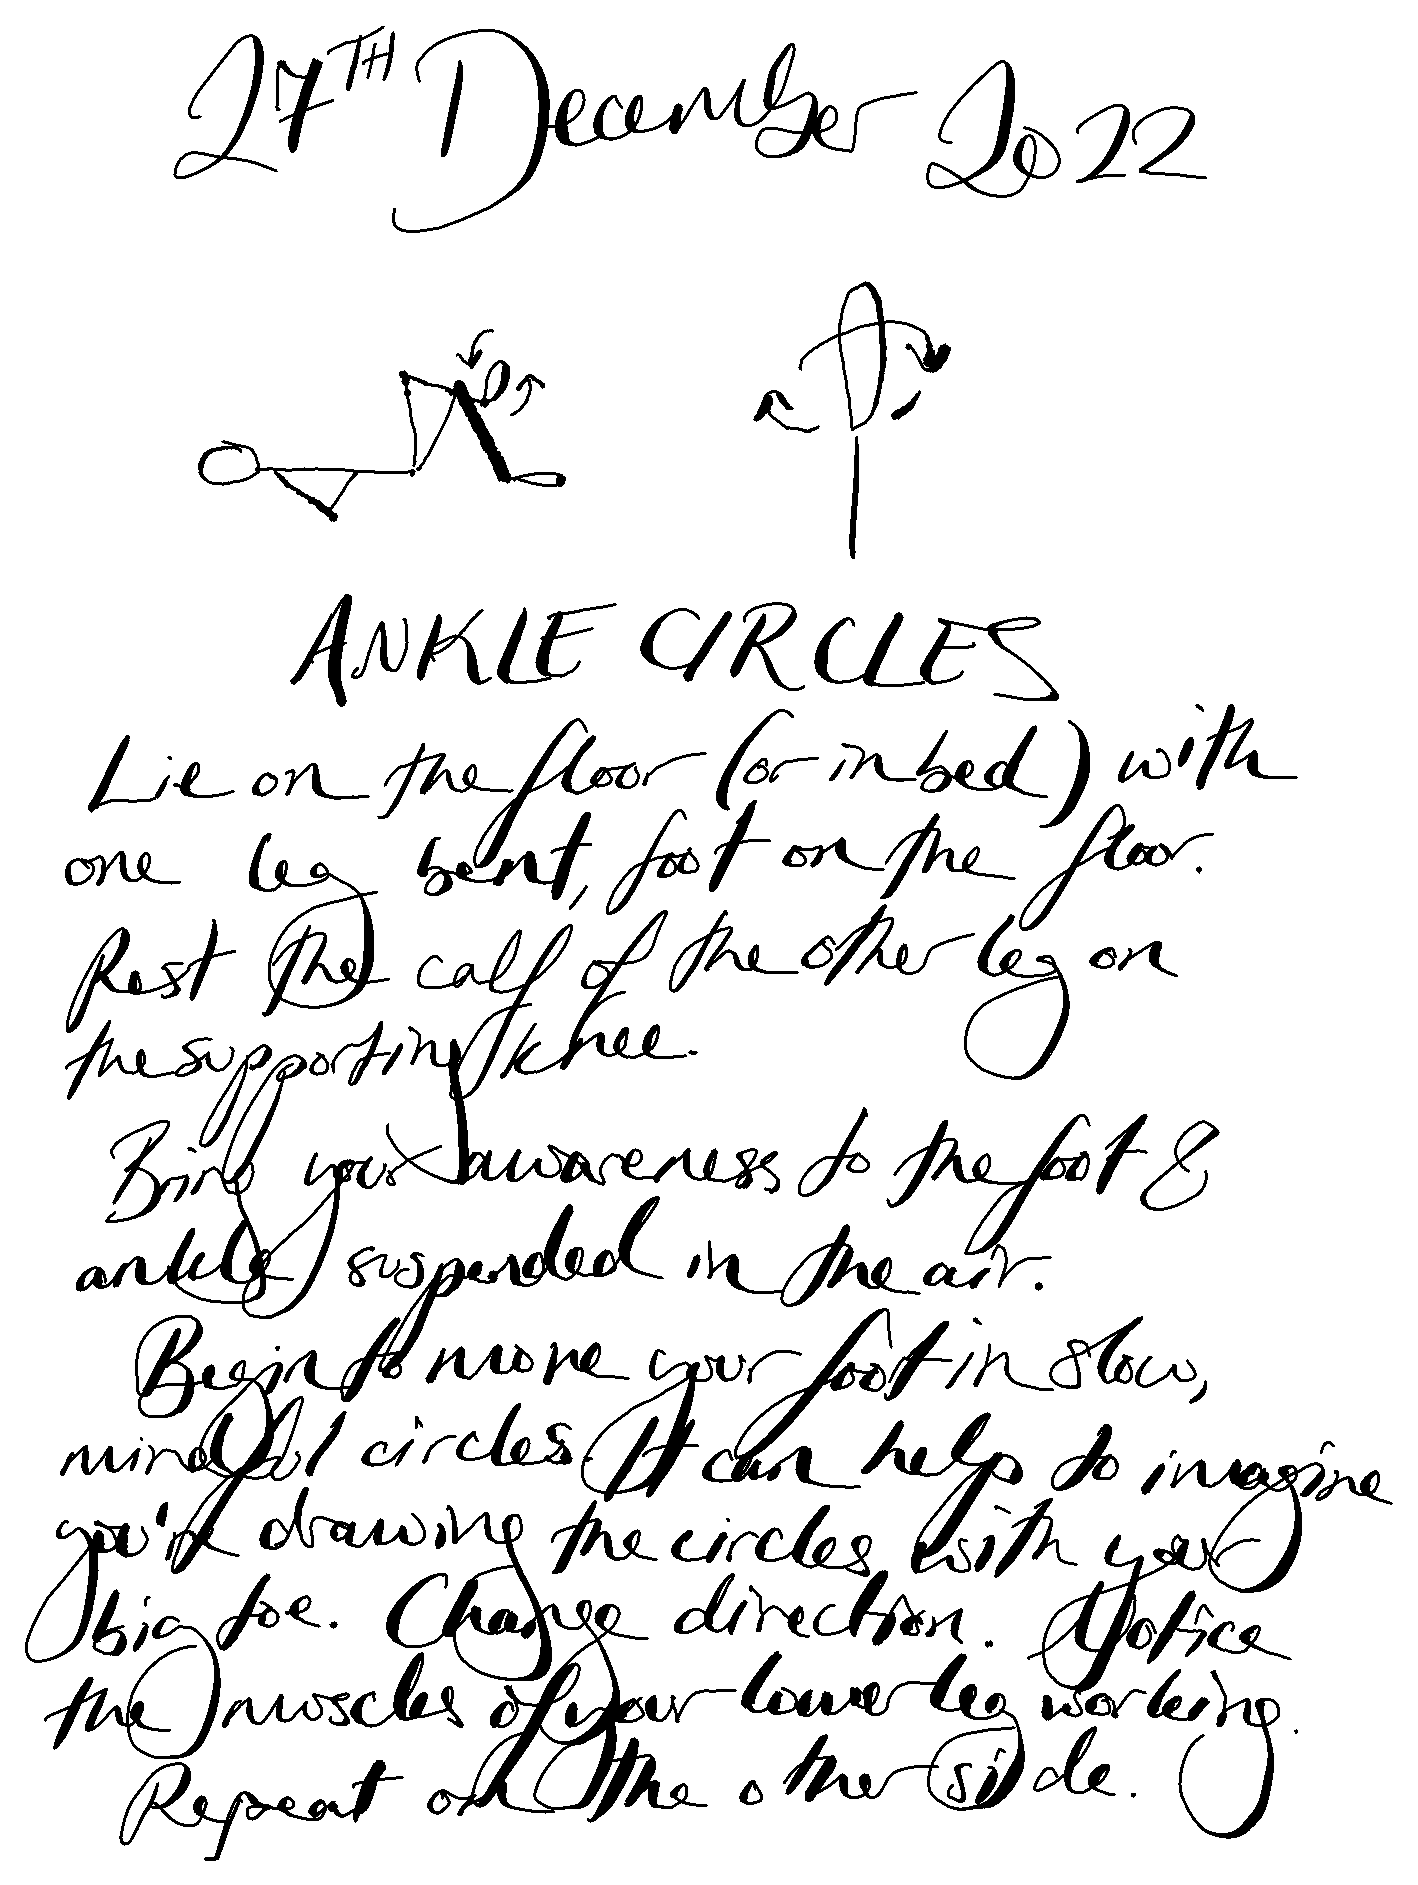 27TH December 2022
ANKLE CIRCLES
Lie on the floor (or in bed) with
one leg bent, foot on the floor.
Rest the calf of the other leg on
the supporting knee.
Bring your awareness to the foot &
ankle suspended in the air.
Begin to move your foot in slow,
mindful circles. It can help to imagine
you're drawing the circles with your
big toe. Change direction. Notice
the muscles of your lower leg working.
Repeat on the other side.